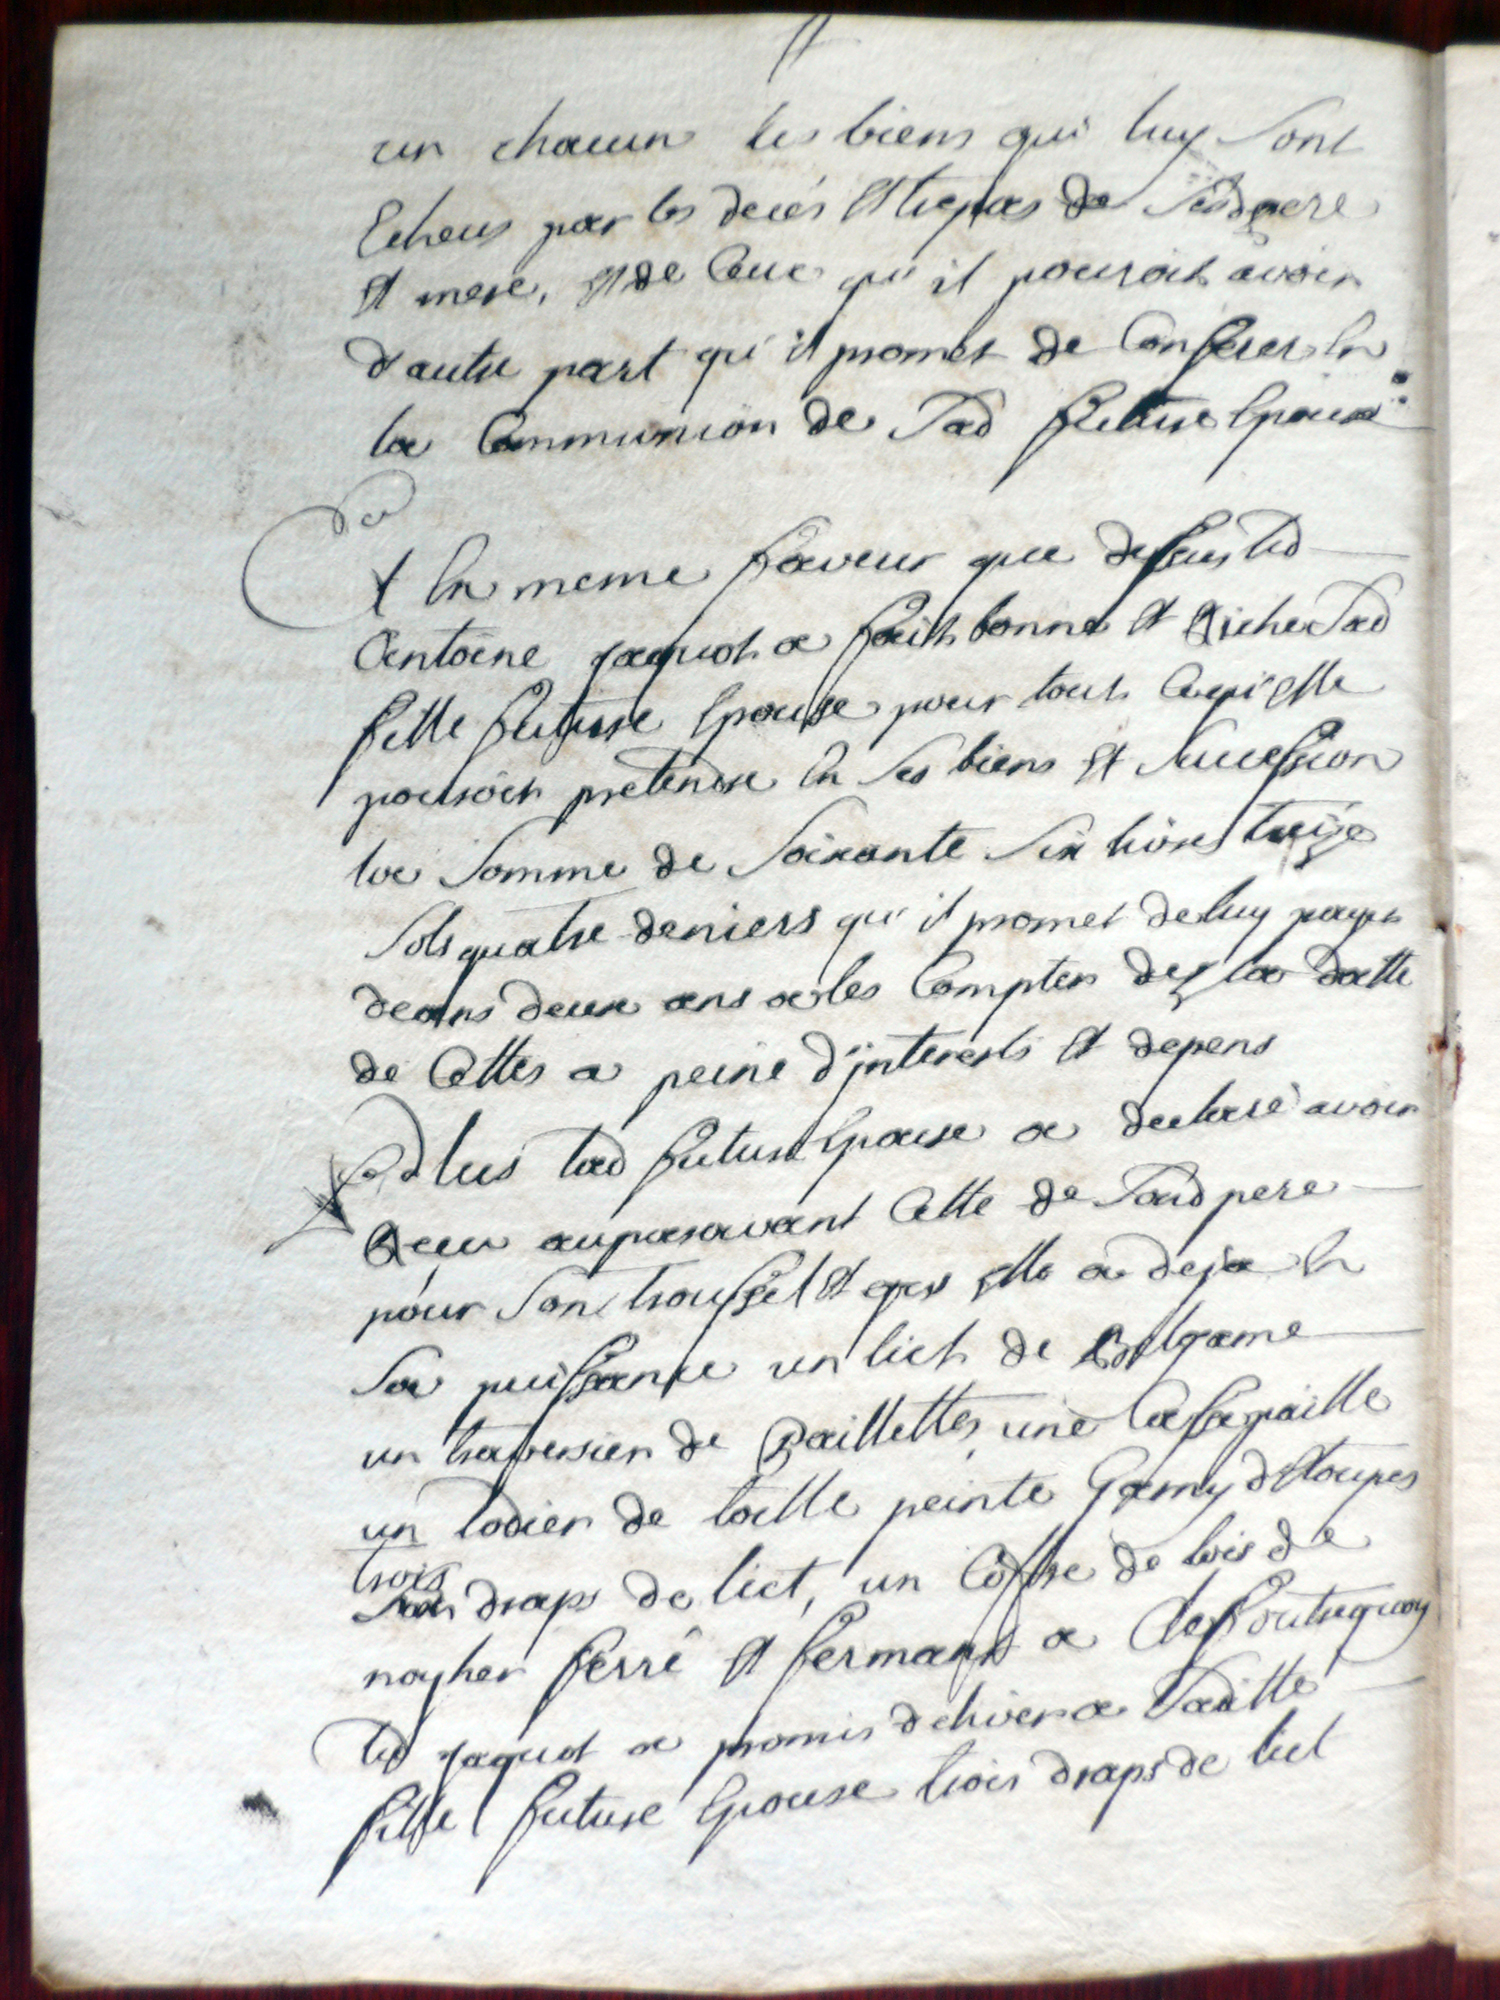 un chacun les biens qui luy sont
Echeus par les decés Et trepas de Sesd pere
Et mere, Et de Ceux qu'il pouroit avoir
d'autre part qu'il promet de Conferer En
la Communion de Sad future Epouse
Et En meme faveur que dessus led
Antoine jaquot a fait bonne Et Riche Sad
fille future Epouse pour tout Ce qu'elle
pouroit pretendre En Ses biens Et Succession
La Somme de Soixante Six livres treize
Sols quatre deniers qu'il promet de luy payer
deans deux ans a les Compter dez la datte
de Cettes a peine d'jnterests Et depens
Plus lad future Epouse a declaré avoir
Receu auparavant Cette de Sond pere
pour Son troussel Et que Elle a deja En
Sa puissance un lict de Balzane
un traversier de Paillettes, une Cassepaille
un lodier de toille peinte Garny d'Etoupes
trois
draps de lict, un Coffre de bois de
noyher ferré Et fermant a Clef outre quoy
led jaquot a promis delivrer a Saditte
fille future Epouse trois draps de lict